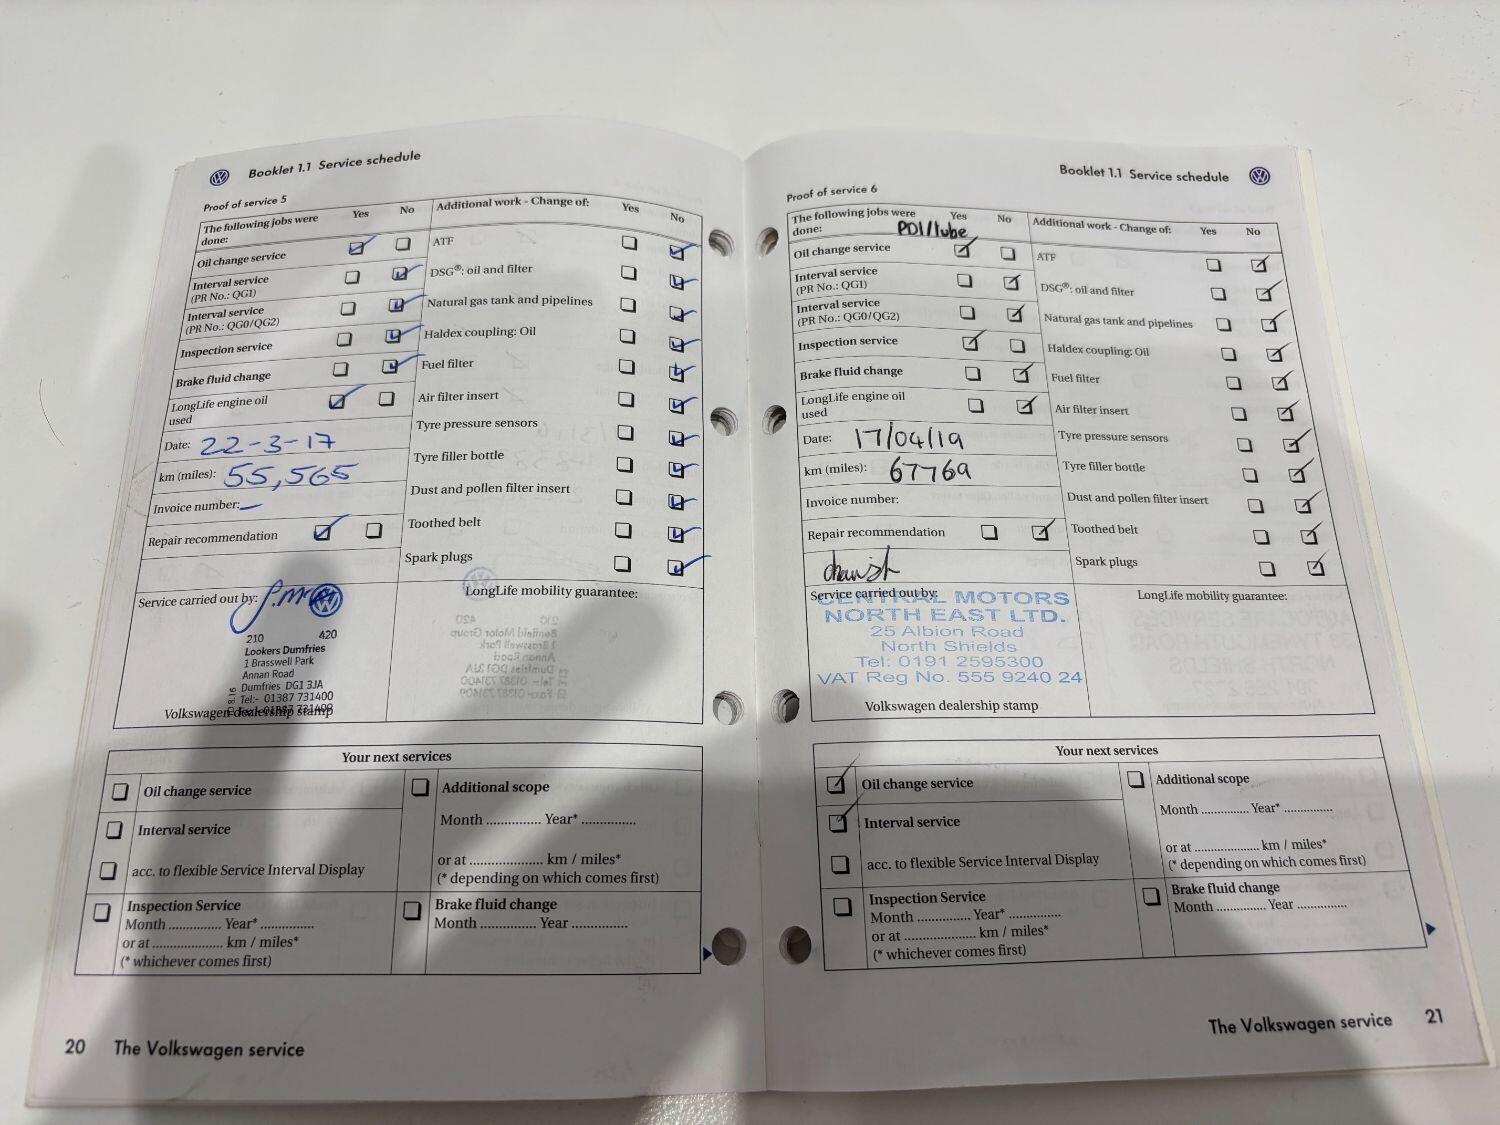 Booklet 1.1 Service schedule
Proof of service 5
The following jobs were done: Yes No
Additional work - Change of: Yes No
Oil change service
Interval service
(PR No.: QG1)
Interval service
(PR No.: QG0/QG2)
Inspection service
Brake fluid change
LongLife engine oil
used
Date: 22-3-17
km (miles): 55,565
Invoice number: —
Repair recommendation
ATF
DSG®: oil and filter
Natural gas tank and pipelines
Haldex coupling: Oil
Fuel filter
Air filter insert
Tyre pressure sensors
Tyre filler bottle
Dust and pollen filter insert
Toothed belt
Spark plugs
Service carried out by:
210 420
Lookers Dumfries
1 Brasswell Park
Annan Road
Dumfries DG1 3JA
Tel:- 01387 731400
Volkswagen dealership stamp
LongLife mobility guarantee:
Your next services
Oil change service
Interval service
acc. to flexible Service Interval Display
Inspection Service
Month .............. Year* ..............
or at ..................... km / miles*
(* whichever comes first)
Additional scope
Month .............. Year* ..............
or at ..................... km / miles*
(* depending on which comes first)
Brake fluid change
Month .............. Year ..............
20 The Volkswagen service
Booklet 1.1 Service schedule
Proof of service 6
The following jobs were
done: Yes No
PDI/lube
Additional work - Change of: Yes No
Oil change service
Interval service
(PR No.: QG1)
Interval service
(PR No.: QG0/QG2)
Inspection service
Brake fluid change
LongLife engine oil
used
Date: 17/04/19
km (miles): 67769
Invoice number:
Repair recommendation
ATF
DSG®: oil and filter
Natural gas tank and pipelines
Haldex coupling: Oil
Fuel filter
Air filter insert
Tyre pressure sensors
Tyre filler bottle
Dust and pollen filter insert
Toothed belt
Spark plugs
Service carried out by:
CENTRAL MOTORS
NORTH EAST LTD.
25 Albion Road
North Shields
Tel: 0191 2595300
VAT Reg No. 555 9240 24
Volkswagen dealership stamp
LongLife mobility guarantee:
Your next services
Oil change service
Interval service
acc. to flexible Service Interval Display
Inspection Service
Month .............. Year* ..............
or at ..................... km / miles*
(* whichever comes first)
Additional scope
Month .............. Year* ..............
or at ..................... km / miles*
(* depending on which comes first)
Brake fluid change
Month .............. Year ..............
The Volkswagen service 21